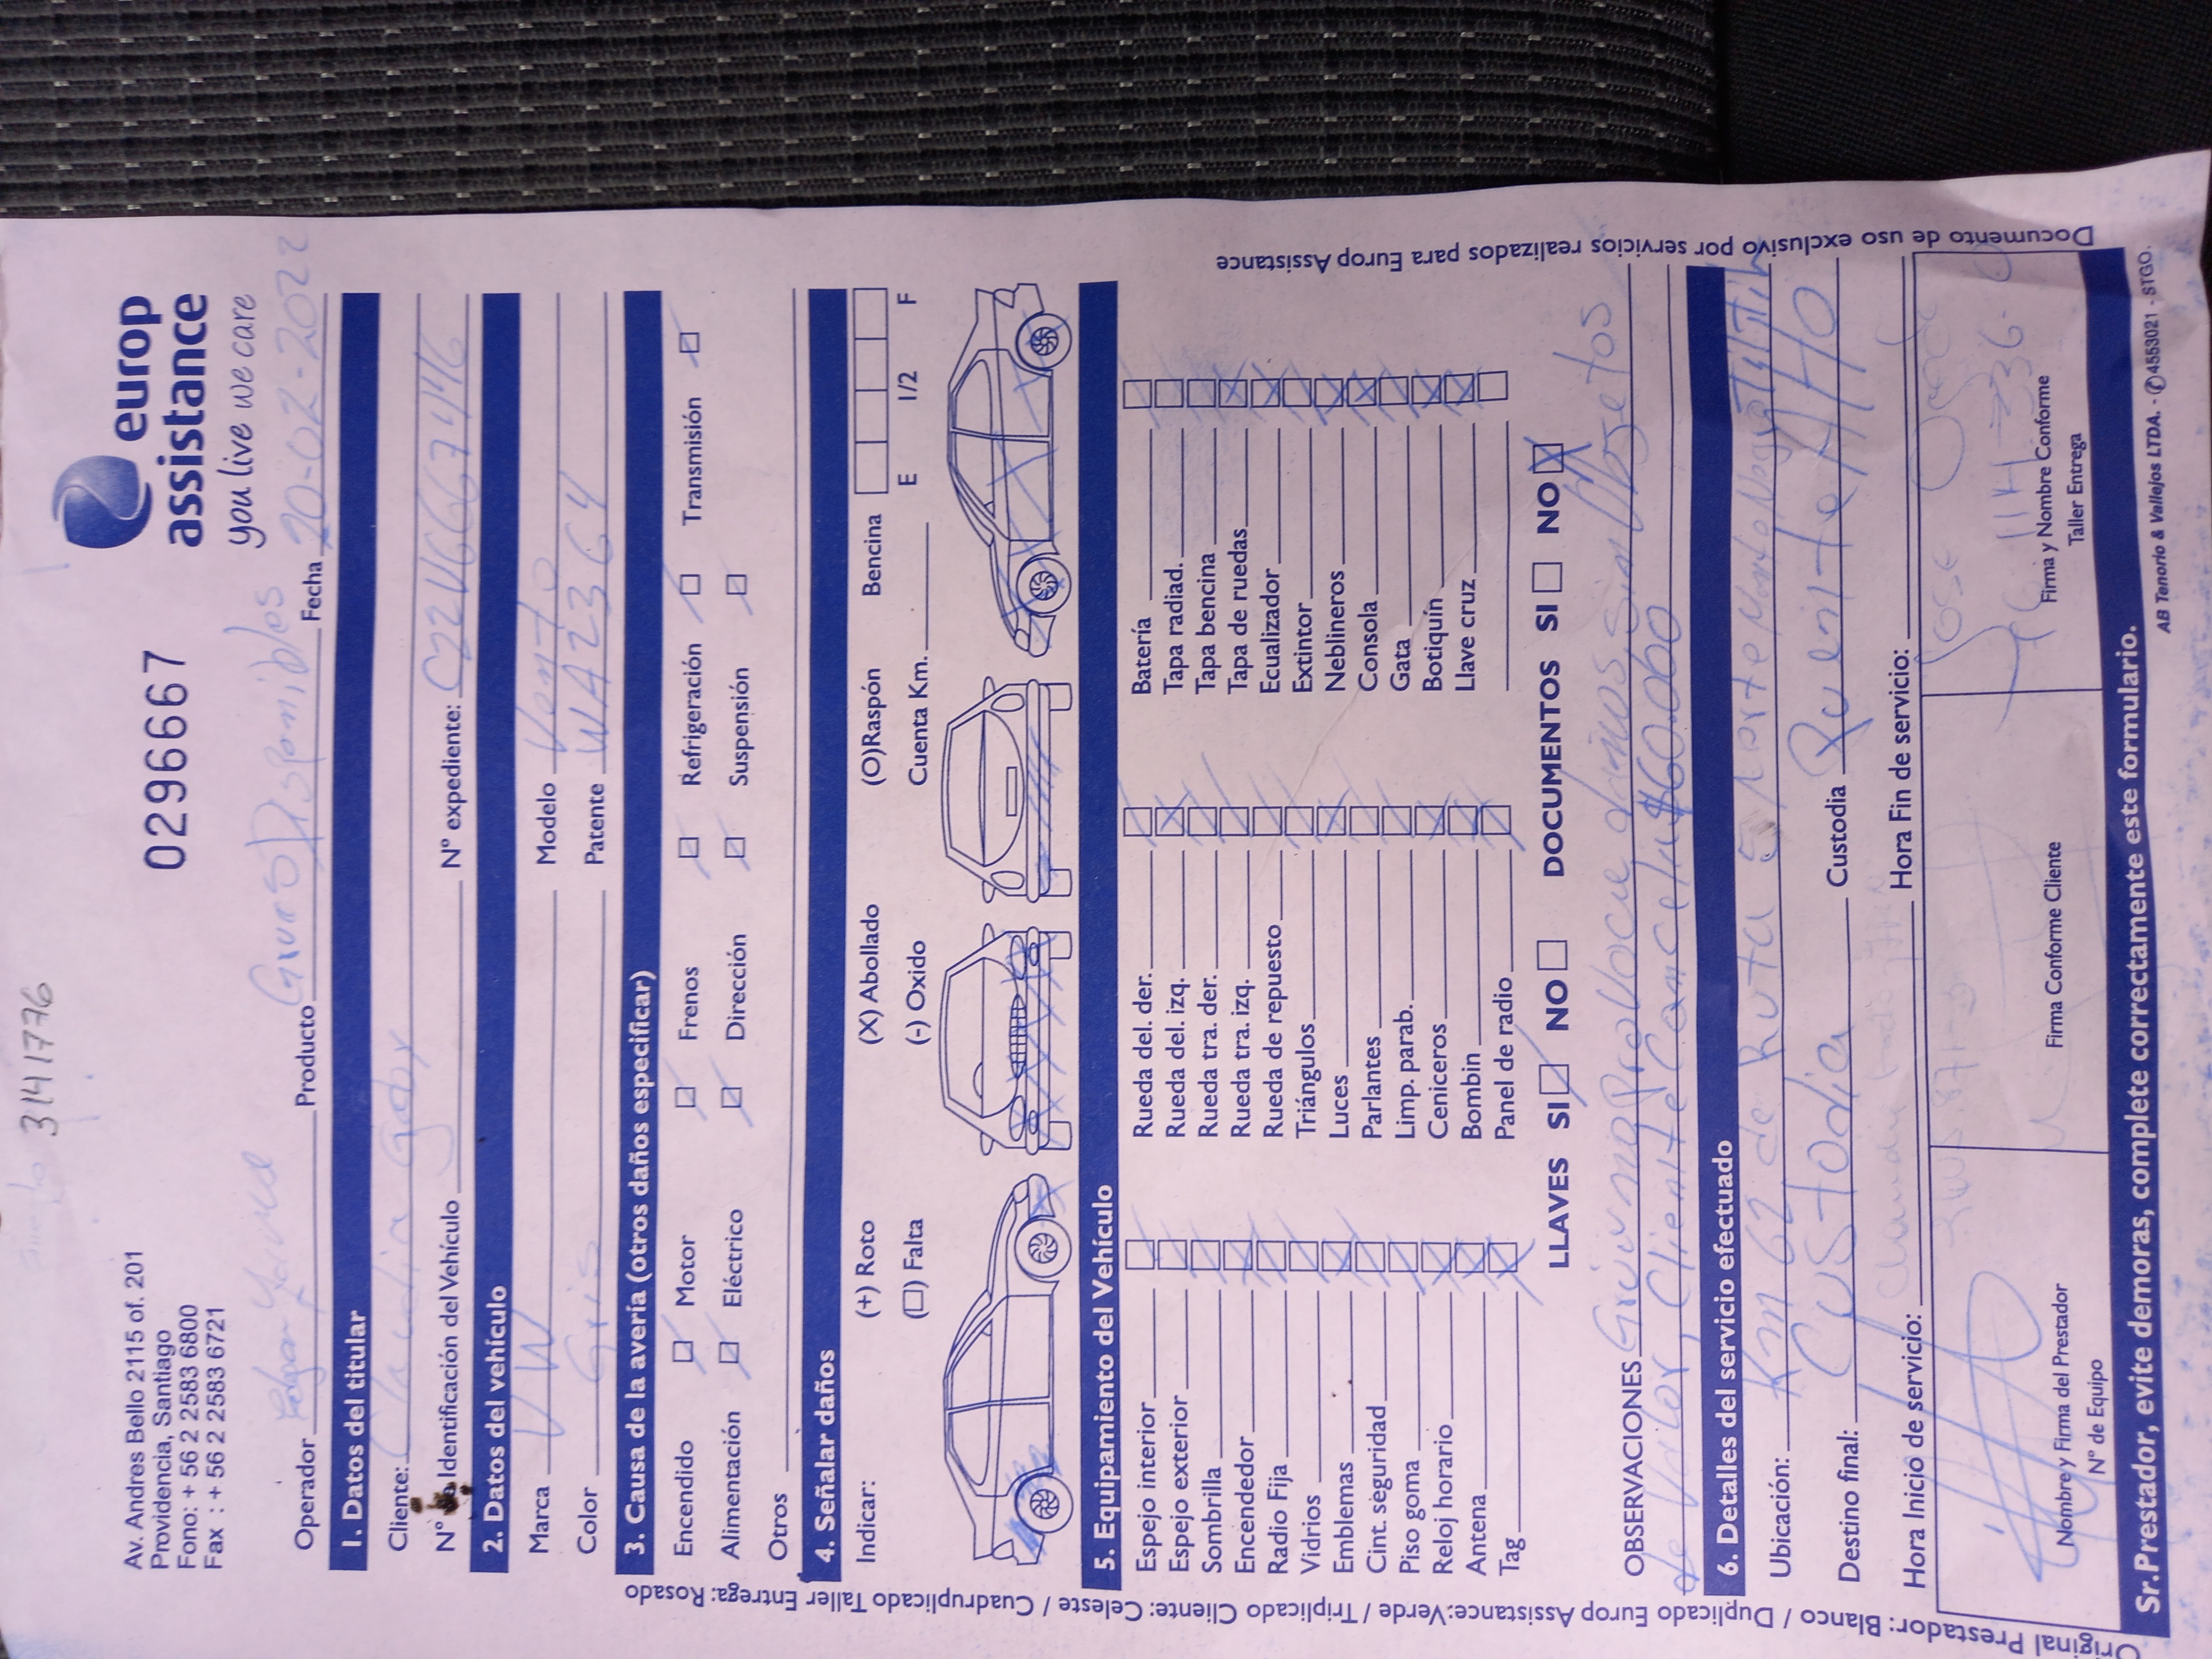 3141776
Av. Andres Bello 2115 of. 201
Providencia, Santiago
Fono: + 56 2 2583 6800
Fax : + 56 2 2583 6721
0296667
europ
assistance
you live we care
Operador Producto Gruas Disponibles Fecha 20-02-2022
1. Datos del titular
Cliente: Claudia Godoy
N° Identificación del Vehículo N° expediente: C22V6667446
2. Datos del vehículo
Marca VW Modelo Vento
Color Gris Patente WA2364
3. Causa de la avería (otros daños especificar)
Encendido Motor Frenos Refrigeración Transmisión
Alimentación Eléctrico Dirección Suspensión
Otros
4. Señalar daños
Indicar: (+) Roto (X) Abollado (O)Raspón Bencina
(□) Falta (-) Oxido Cuenta Km. E 1/2 F
5. Equipamiento del Vehículo
Espejo interior Rueda del. der. Batería
Espejo exterior Rueda del. izq. Tapa radiad.
Sombrilla Rueda tra. der. Tapa bencina
Encendedor Rueda tra. izq. Tapa de ruedas
Radio Fija Rueda de repuesto Ecualizador
Vidrios Triángulos Extintor
Emblemas Luces Neblineros
Cint. seguridad Parlantes Consola
Piso goma Limp. parab. Gata
Reloj horario Ceniceros Botiquín
Antena Bombin Llave cruz
Tag Panel de radio
LLAVES SI NO DOCUMENTOS SI NO
OBSERVACIONES Grua no Provoca daños, sin Objetos
de Valor, Cliente Cancela $60.000
6. Detalles del servicio efectuado
Ubicación: Km 62 de Ruta 5 Norte
Destino final: Custodia Custodia
Hora Inicio de servicio: Hora Fin de servicio:
Nombre y Firma del Prestador
N° de Equipo
Firma Conforme Cliente
Jose
Firma y Nombre Conforme
Taller Entrega
Sr.Prestador, evite demoras, complete correctamente este formulario.
AB Tenorio & Vallejos LTDA. - ✆4553021 - STGO.
Original Prestador: Blanco / Duplicado Europ Assistance:Verde / Triplicado Cliente: Celeste / Cuadruplicado Taller Entrega: Rosado
Documento de uso exclusivo por servicios realizados para Europ Assistance